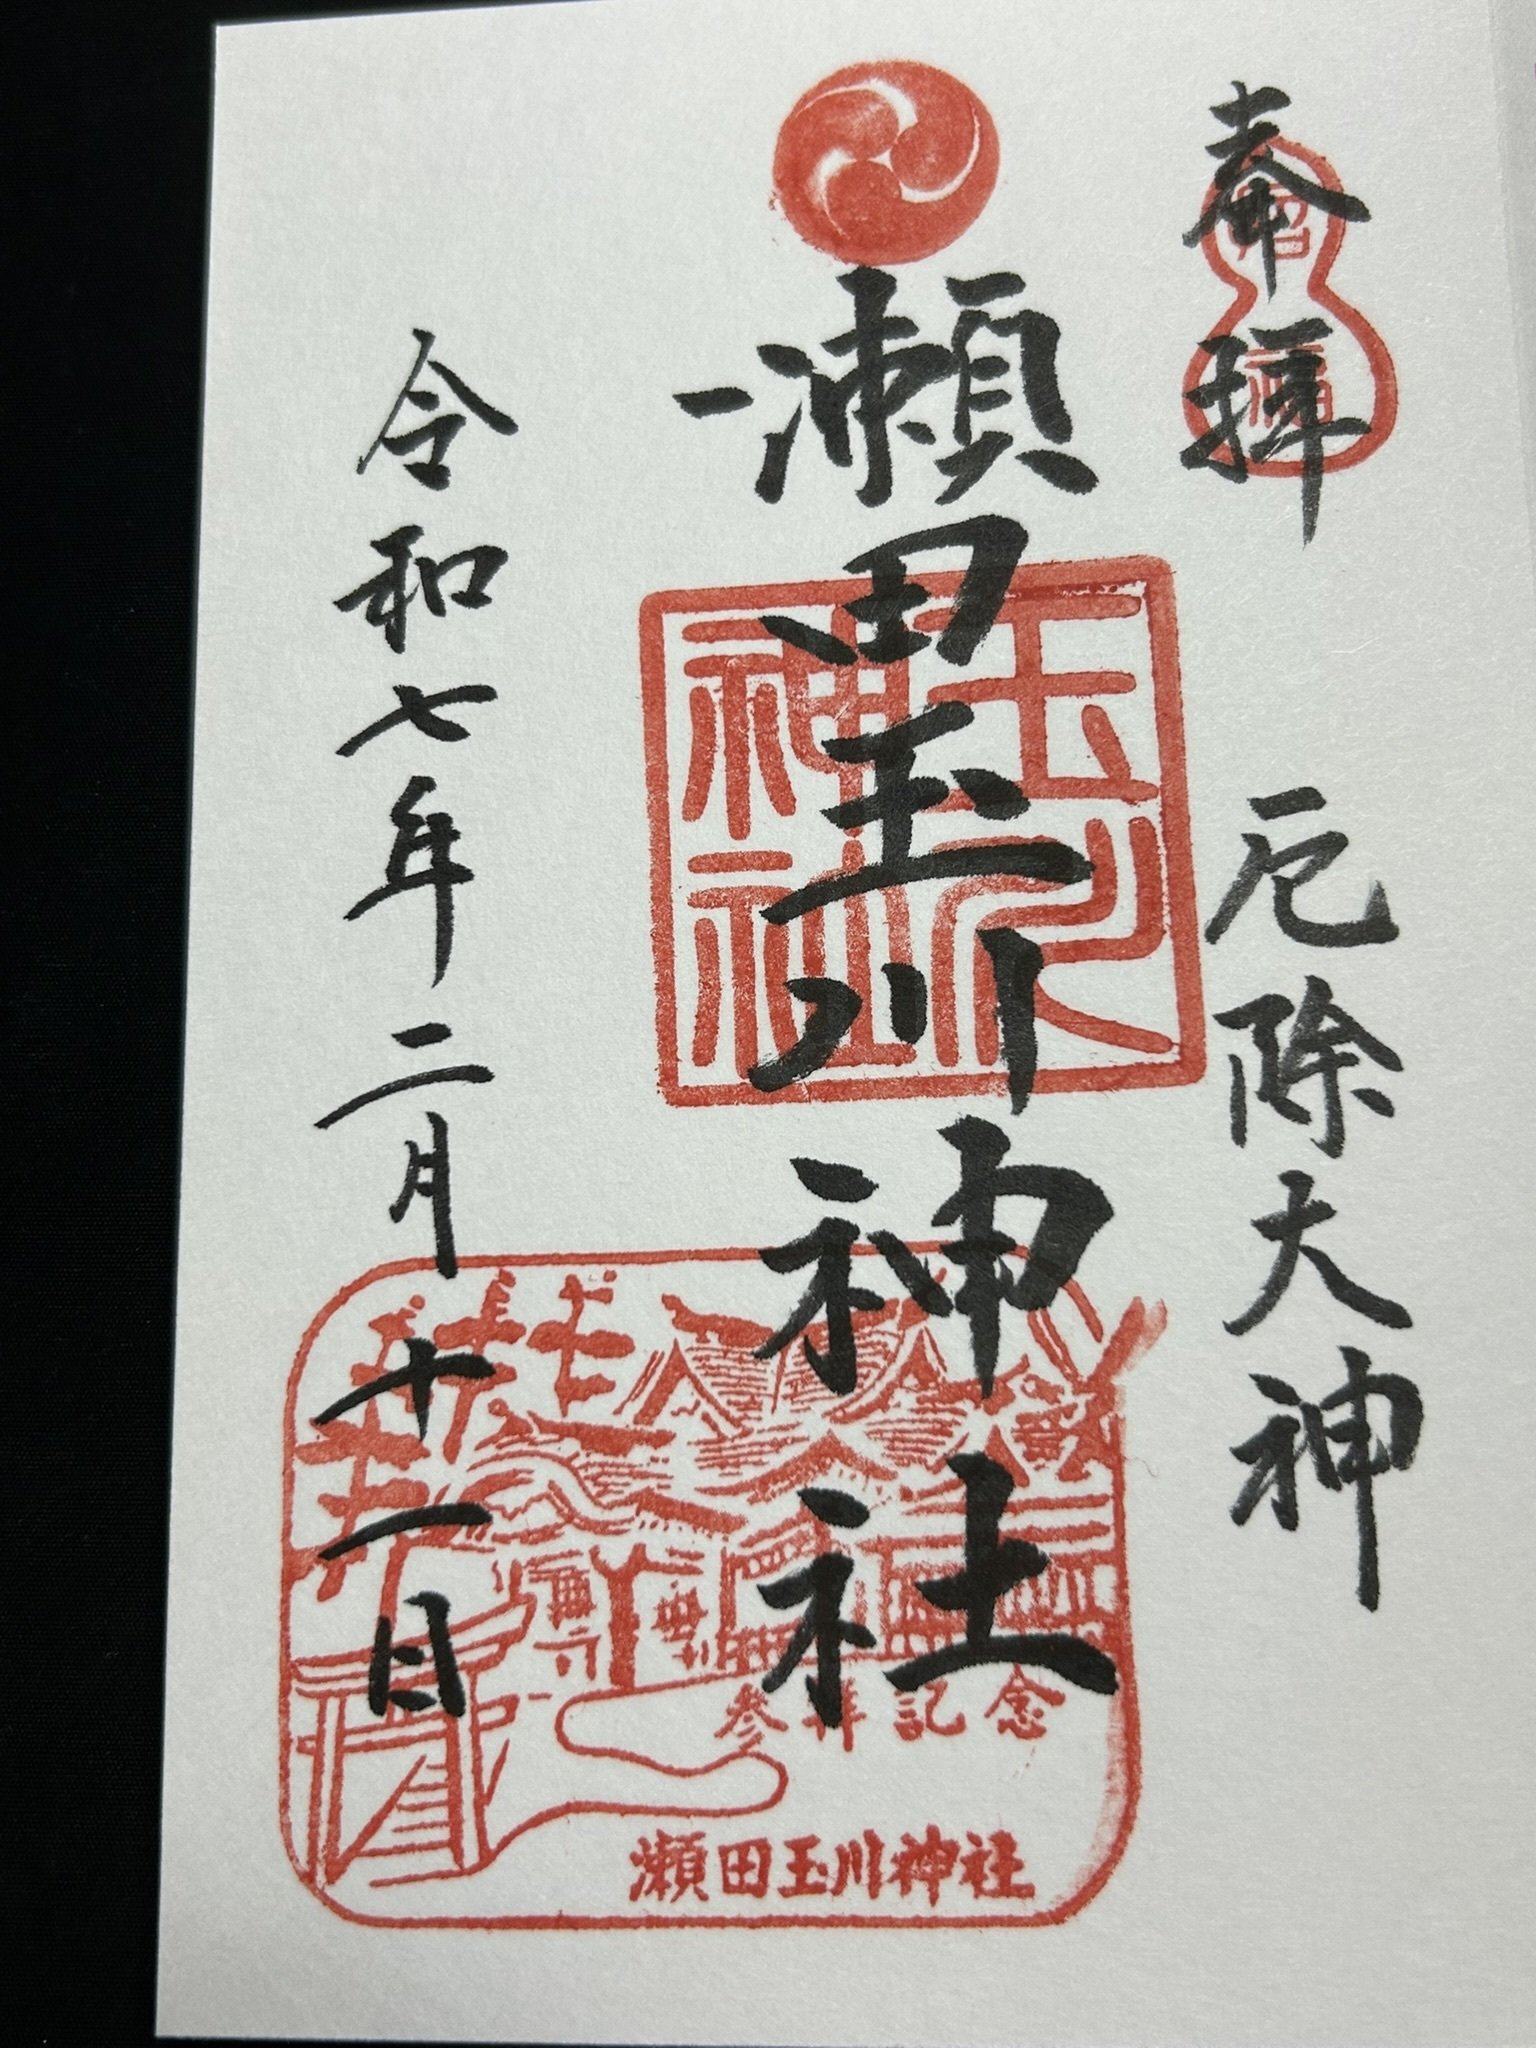 奉拝
厄除大神
瀬田玉川神社
玉川
神社
令和七年二月十一日
参拝記念
瀬田玉川神社